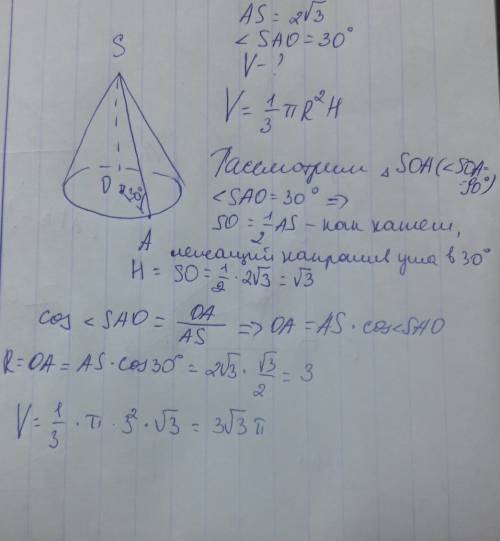 AS = 2√3
∠SAO = 30°
V - ?
V = 1/3 πR²H
S
O
R 30°
A
Рассмотрим △SOA (∠SOA = 90°)
∠SAO = 30° =>
SO = 1/2 AS - как катет,
лежащий напротив угла в 30°
H = SO = 1/2 · 2√3 = √3
cos ∠SAO = OA/AS => OA = AS · cos∠SAO
R = OA = AS · cos30° = 2√3 · √3/2 = 3
V = 1/3 · π · 3² · √3 = 3√3 π